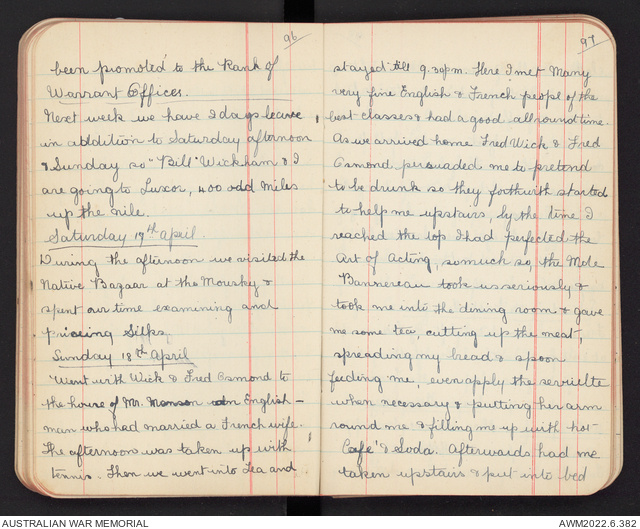 96
been promoted to the Rank of
Warrant Officer.
Next week we have 2 days leave
in addition to Saturday afternoon
& Sunday so "Bill" Wickham & I
are going to Luxor, 400 odd miles
up the nile.
Saturday 17th April.
During the afternoon we visited the
Native Bazaar at the Mousky &
spent our time examining and
priceing Silks.
Sunday 18th April
Went with Wick & Fred Osmond to
the house of Mr. Monson an English-
man who had married a French wife.
The afternoon was taken up with
tennis. Then we went into Tea and
97
stayed till 9.30pm. Here I met Many
very fine English & French people of the
best classes & had a good allround time.
As we arrived home Fred Wick & Fred
Osmond persuaded me to pretend
to be drunk so they forthwith started
to help me upstairs, by the time I
reached the top I had perfected the
Art of Acting, so much so, the Mdle
Bannereau took us seriously &
took me into the dining room & gave
me some tea, cutting up the meat,
spreading my bread & spoon
feeding me, even apply the serviette
when necessary & putting her arm
round me & filling me up with hot
Cafe' & Soda. Afterwards had me
taken upstairs & put into bed
AUSTRALIAN WAR MEMORIAL
AWM2022.6.382